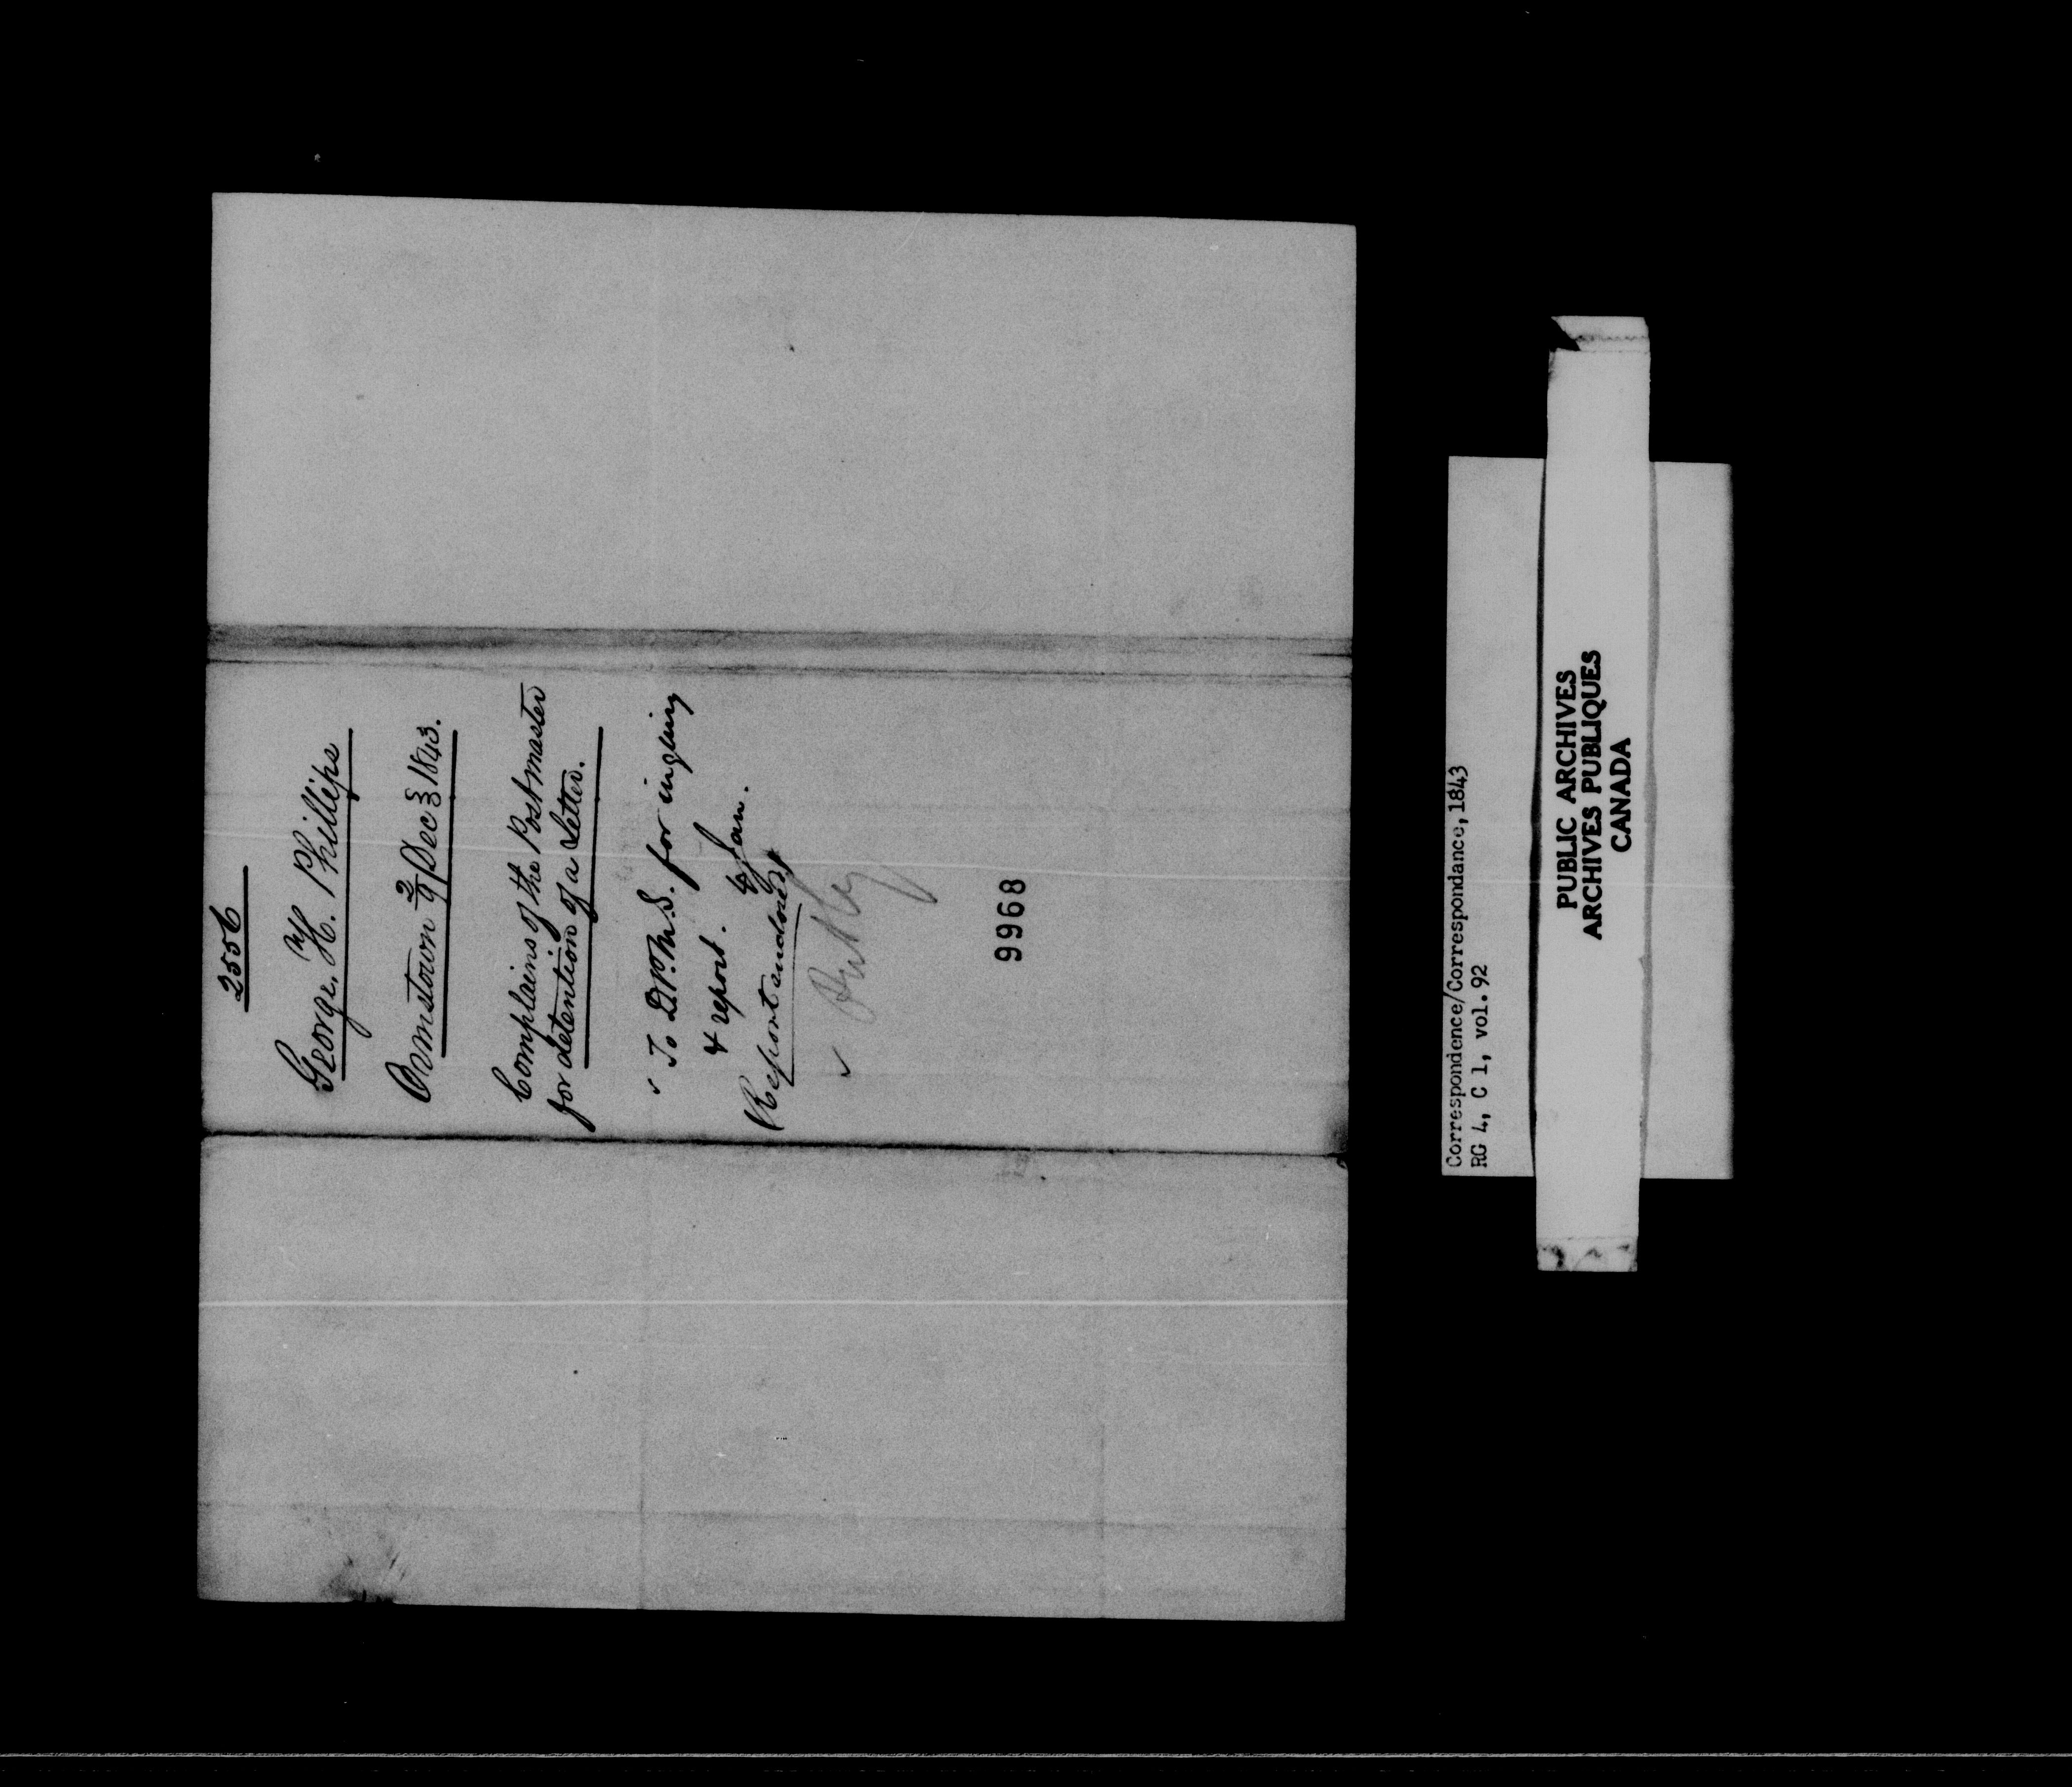 2556
George, H. Phillips
Ormstown 29 Dec 1843.
Complains of the Postmaster
for detention of a Letter.
To D.P.M.G. for inquiry
& report. Jan.
Report endorsed
9968
Correspondence/Correspondance, 1843
RG 4, C 1, vol. 92
PUBLIC ARCHIVES
ARCHIVES PUBLIQUES
CANADA